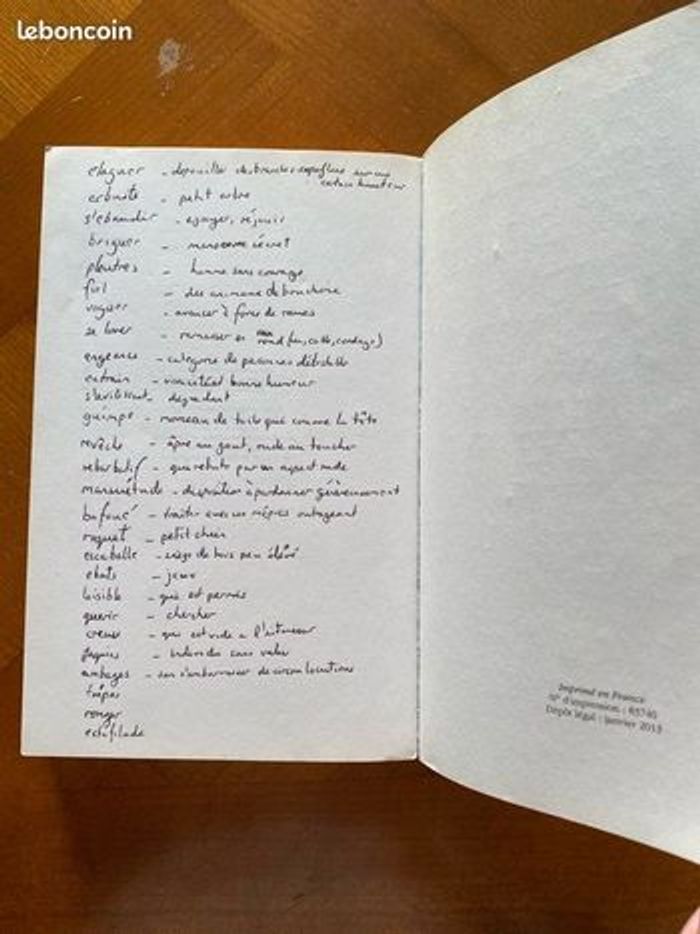 leboncoin
elaguer - depouiller des branches superflues sur une
certaine hauteur
arbuste - petit arbre
s'ebaudir - egayer, réjouir
briguer - manoeuvre secret
pleutres - homme sans courage
fiel - des animaux de boucherie
voguer - avancer à force de rames
se lover - ramasser en rond (feu, cable, cordage)
engeance - categorie de personnes détestable
entrain - vivacité et bonne humeur
s'avilissant - dégradant
guimpe - morceau de toile qui couvre la tête
revêche - âpre au gout, rude au toucher
rebarbatif - qui rebute par un aspect rude
mansuétude - disposition à pardonner généreusement
bafoué - traiter avec un mépris outrageant
roquet - petit chien
escabelle - siège de bois peu élévé
ebats - jeux
loisible - qui est permis
querir - chercher
creux - qui est vide a l'interieur
- individu sans valeur
ambages - sans s'embarrasser de circonlocutions
ronger
estafilade
Imprimé en France
N° d'impression : 85740
Dépôt légal : janvier 2013